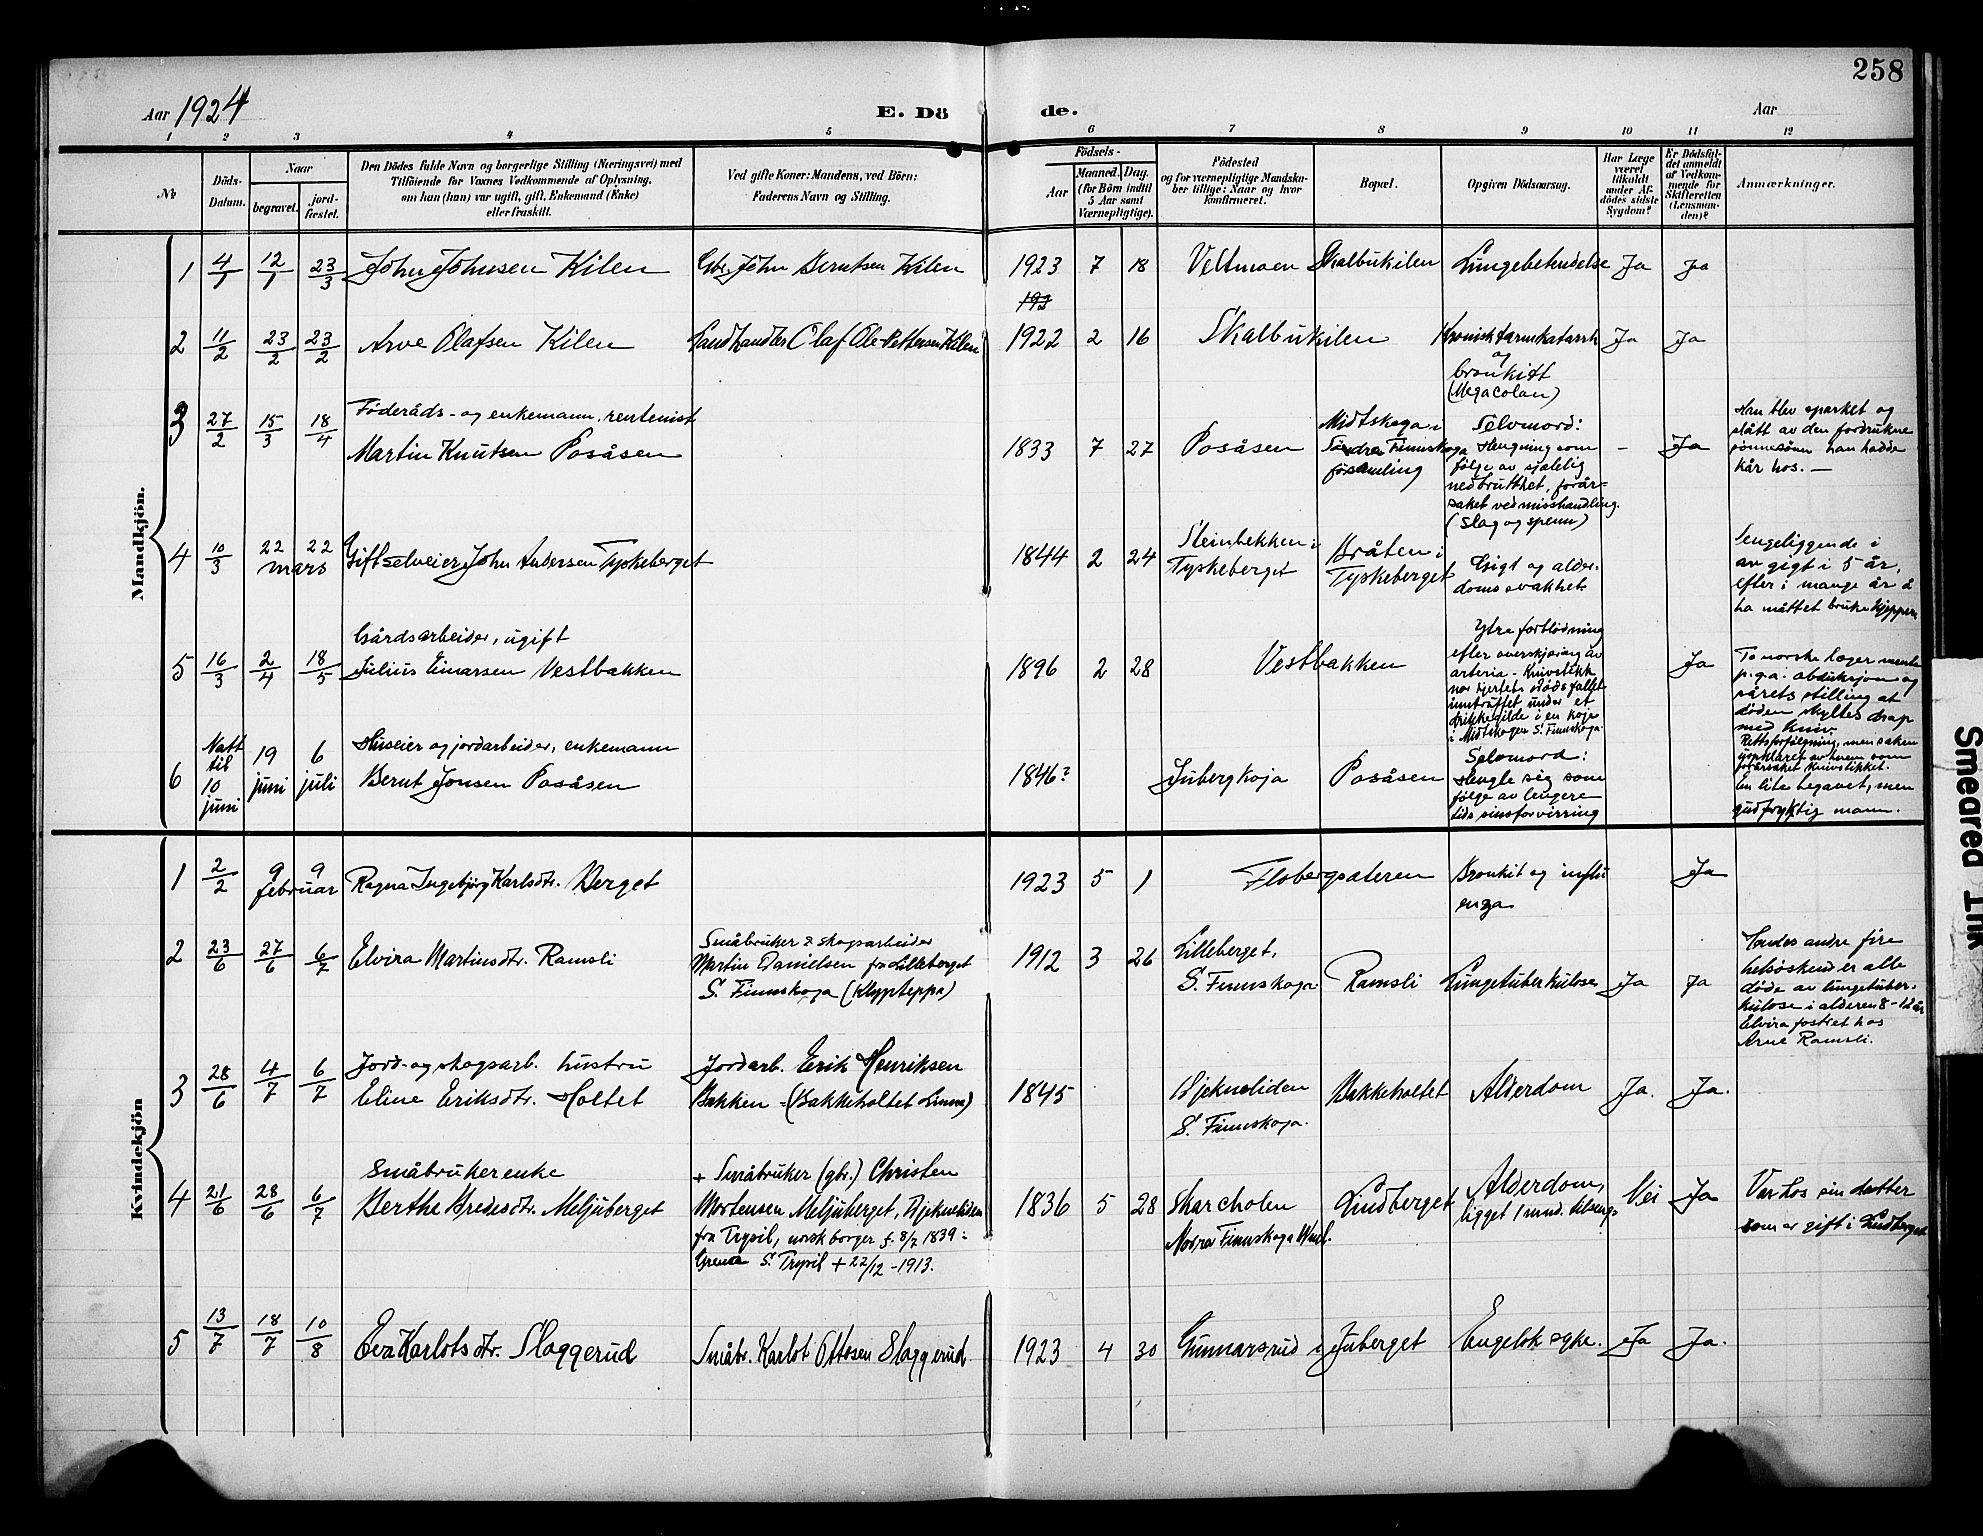 258
Aar 1924 E. Dö de. Aar
1 2 3 4 5 6 7 8 9 10 11 12
No
Döds-
Datum.
Naar
begravet.
jord-
fæstet.
Den Dödes fulde Navn og borgerlige Stilling (Næringsvei) med
Tilföiende for Voxnes Vedkommende af Oplysning,
om han (hun) var ugift, gift, Enkemand (Enke)
eller fraskilt.
Ved gifte Koner: Mandens, ved Börn:
Faderens Navn og Stilling.
Födsels-
Aar
Maaned. Dag.
(for Börn indtil
5 Aar samt
Værnepligtige).
Födested
og for værnepligtige Mandska-
ber tillige: Naar og hvor
konfirmeret.
Bopæl.
Opgiven Dödsaarsag.
Har Læge
været
tilkaldt
under Af-
dödes sidste
Sygdom?
Er Dödsfal-
det anmeldt
af Vedkom-
mende for
Skifteretten
(Lensman-
den)?
Anmærkninger.
Mandkjön.
1 4/1 12/1 23/3 John Johnsen Kilen Gbr. John Berntsen Kilen 1923 7 18 Veltmoen Skalbukilen Lungebetendelse Ja Ja
192
2 11/2 23/2 23/2 Arve Olafsen Kilen Landhandler Olaf Ole Pettersen Kilen 1922 2 16 Skalbukilen Kronisk tarmkatarrh Ja Ja
og
bronkitt
(Megacolon)
3 27/2 15/3 18/4 Föderåds- og enkemann, rentenist
Martin Knutsen Posåsen 1833 7 27 Posåsen
Midtskoga i
Söndra Finnskoga
församling
Selvmord:
Hengning som
fölge av sjælelig
nedbrutthet, forår-
saket ved misshandling.
(slag og spenn)
- Ja
Han blev sparket og
slått av den fordrukne
sönnesönn han hadde
kår hos. —
4 10/3 22 22 mars Gift selveier John Andersen Tyskeberget 1844 2 24
Steinbekken i
Tyskeberget
Bråten i
Tyskeberget
Gigt og alder-
domssvakhet.
Sengeliggende i
av gigt i 5 år,
efter i mange år å
ha måttet bruke kjepper
5 16/3 2/4 18/5 Gårdsarbeider, ugift
Julius Einarsen Vestbakken 1896 2 28 Vestbakken
Ytre forblödning
efter overskjæring av
arteria - Knivstikk
nær hjertet. Dödsfallet
inntruffet under et
drikkegilde i en koje
i Midtskogen S. Finnskoga
Ja
To norske læger mente
p.g.a. obduksjon og
sårets stilling at
döden skyltes drap
med kniv.
Rettsforfölgning, men saken
uopklaret av hvem som
forårsaket knivstikket.
6 Natt
til
10
juni
19
juni
6
juli
Huseier og jordarbeider, enkemann
Bernt Jonsen Posåsen 1846? Jubergkoja Posåsen
Selvmord:
Hengte sig som
fölge av lengere
tids sinnsforvirring
En lite begavet, men
gudfryktig mann.
Kvindekjön
1 2/2 9 9 februar Ragna Ingebjörg Karlsdtr. Berget 1923 5 1 Flobergsæteren Bronkit og influ
enza
Ja
2 23/6 27/6 6/7 Elvira Martinsdtr. Ramsli
Småbruker & skogsarbeider
Martin Danielsen fra Lilleberget
S. Finnskoga (Klyppteppa)
1912 3 26 Lilleberget,
S. Finnskoga Ramsli Lungetuberkulose Ja Ja
Hendes andre fire
helsöskend er alle
döde av lungetuber-
kulose i alderen 8-12 år
Elvira fostret hos
Arne Ramsli.
3 28/6 4/7 6/7 Jord- og skogsarb. hustru
Eline Eriksdtr. Holtet
Jordarb. Erik Henriksen
Bakken - (Bakkeholtet Linna)
1845 Bjekneliden
S. Finnskoga.
Bakkeholtet Alderdom Ja. Ja.
4 21/6 28/6 6/7 Småbrukerenke
Berthe Bredesdtr. Meljuberget
+ Småbruker (gbr.) Christen
Mortensen Meljuberget, Bjekneliden
fra Trysil, norsk borger f. 8/7 1839 -
Grena S. Trysil + 22/12 -1913.
1836 5 28 Skarcholen
Norra Finnskoga Lindberget
Alderdom,
ligget 1 mnd. tilsengs
Nei Ja
Var hos sin datter
som er gift i Lindberget
5 13/7 18/7 10/8 Eva Karlotsdtr. Slaggerud Småbr. Karlot Ottosen Slaggerud 1923 4 30 Gunnarsrud i Juberget Engelsk syke. Ja Ja.
Smeared Ink